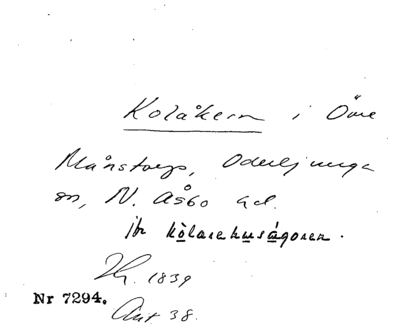 Kolåkern i Övre
Månstorp, Oderljunga
sn, N. Åsbo hd.
jfr kolarehusågoren.
Hg. 1839
Nr 7294.
Akt 38.